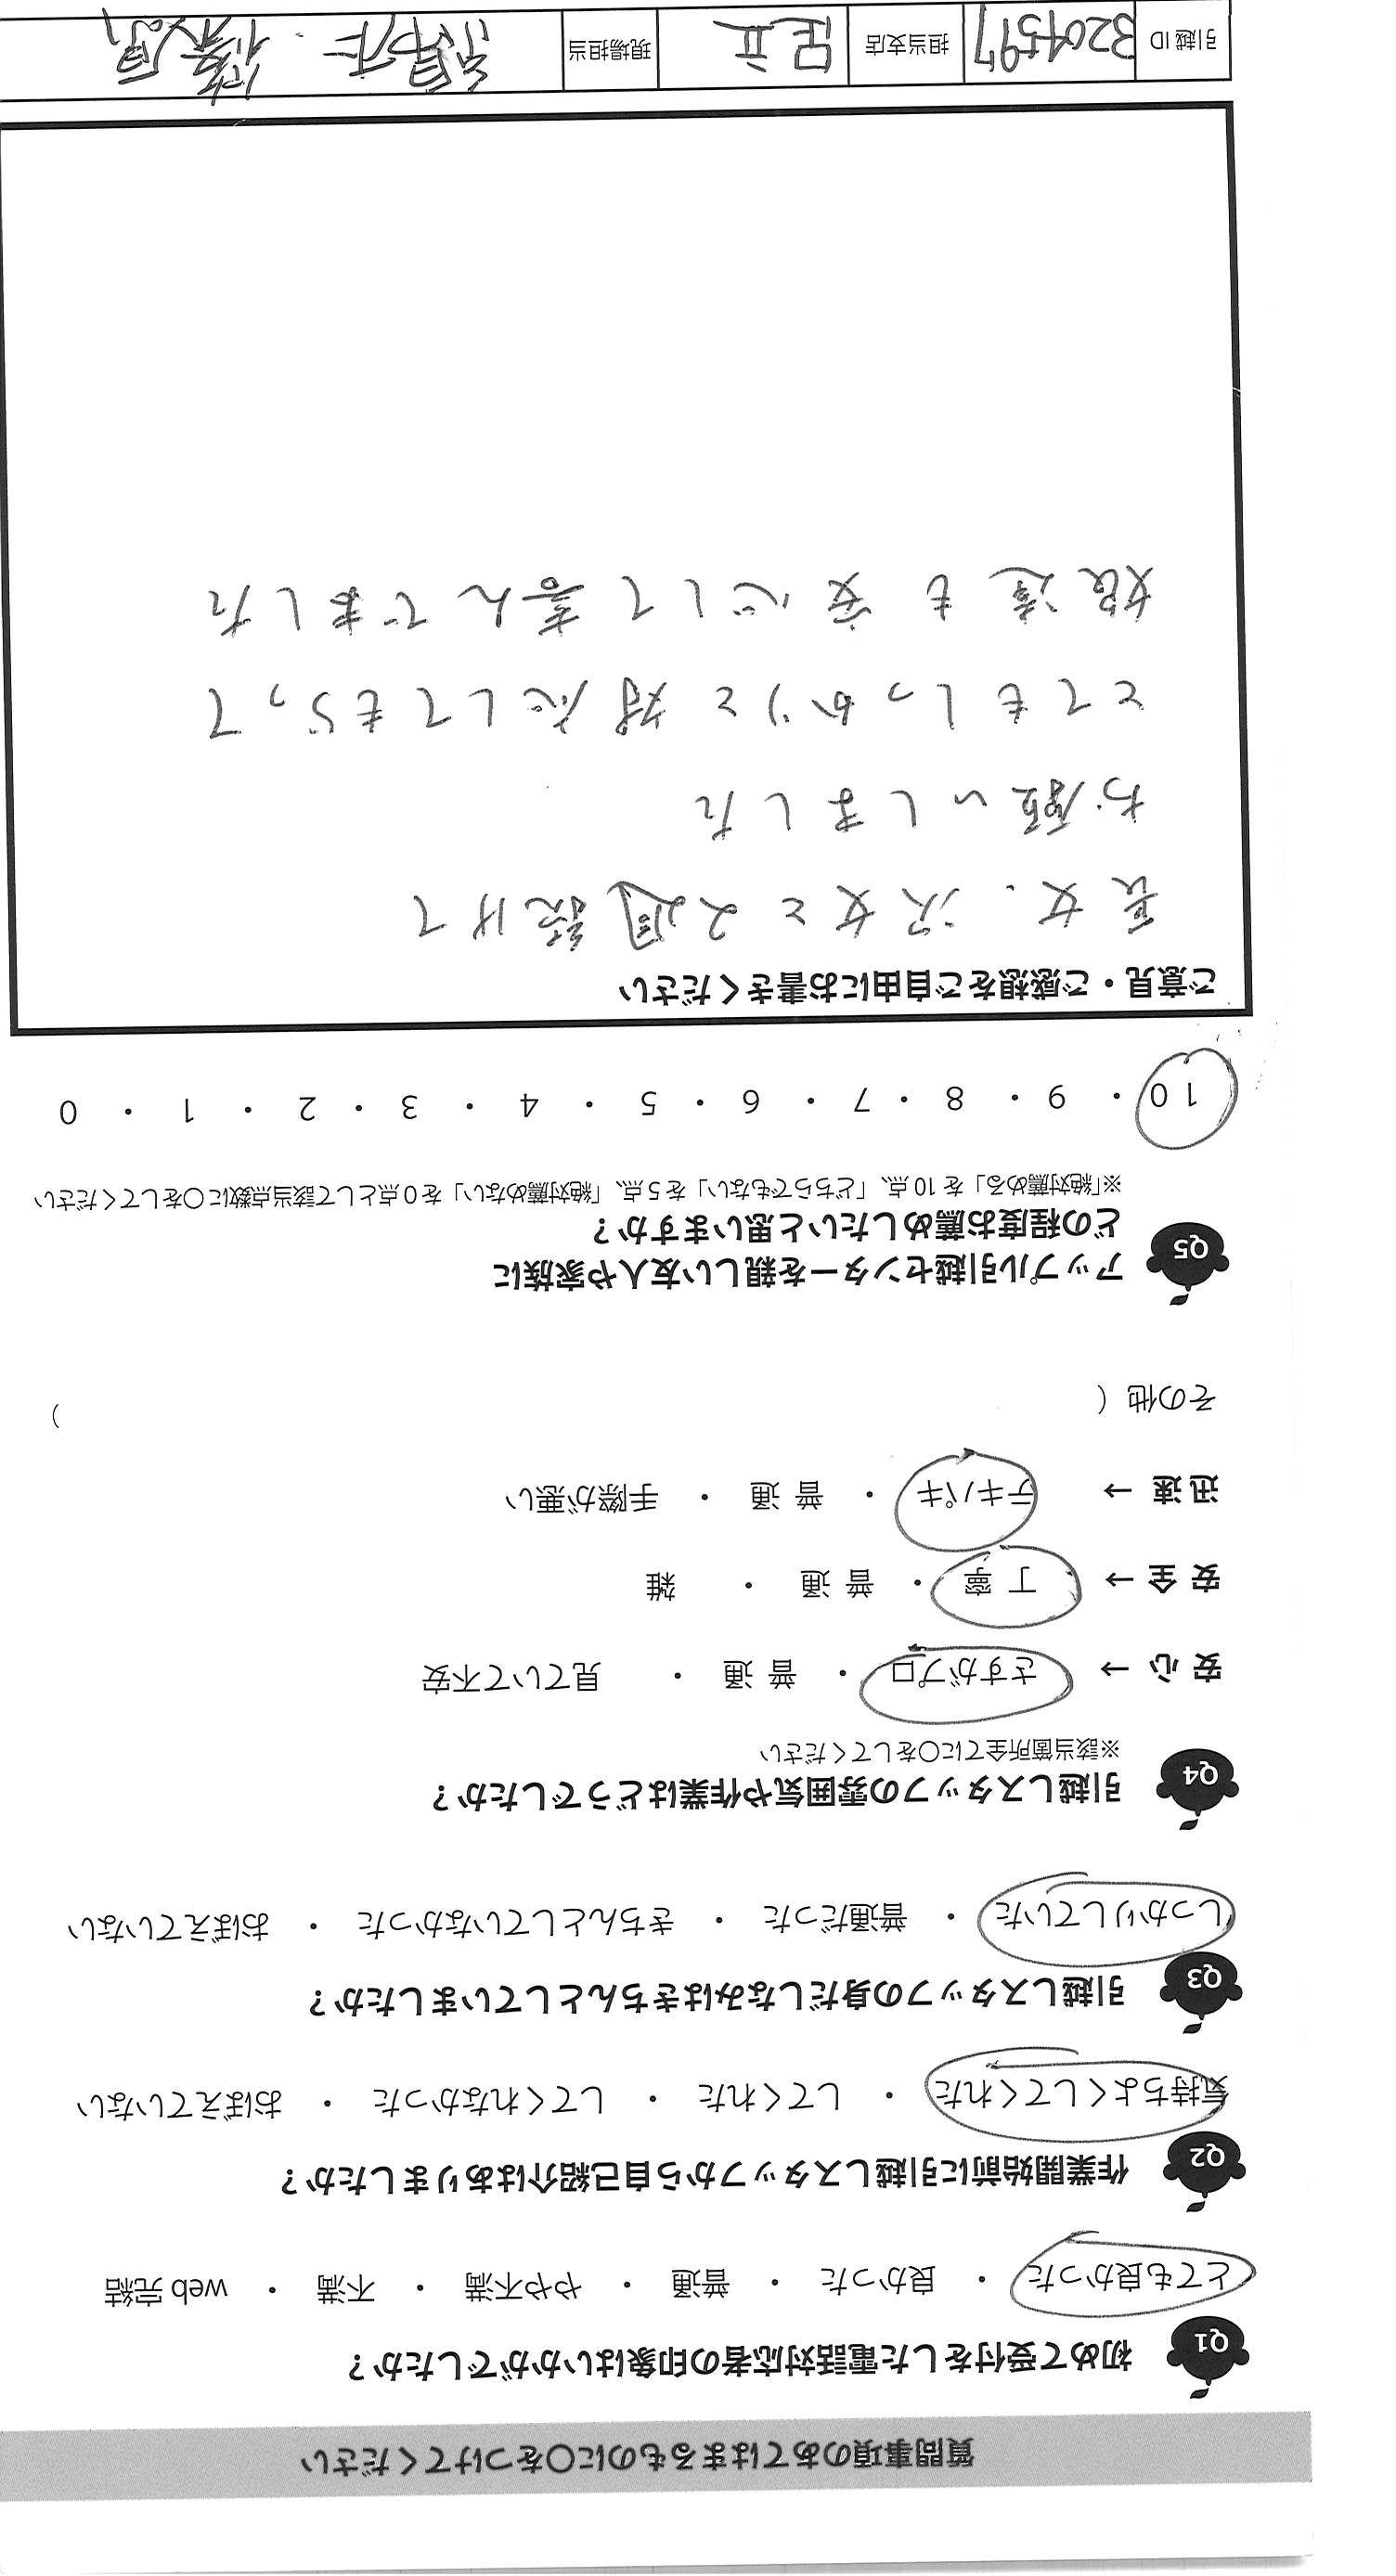 質問事項のあてはまるものに〇をつけてください
Q1 初めて受付をした電話対応者の印象はいかがでしたか？
とても良かった ・ 良かった ・ 普通 ・ やや不満 ・ 不満 ・ web 完結
Q2 作業開始前に引越しスタッフから自己紹介はありましたか？
気持ちよくしてくれた ・ してくれた ・ してくれなかった ・ おぼえていない
Q3 引越しスタッフの身だしなみはきちんとしていましたか？
しっかりしていた ・ 普通だった ・ きちんとしていなかった ・ おぼえていない
Q4 引越しスタッフの雰囲気や作業はどうでしたか？
※該当箇所全てに〇をしてください
安心 → さすがプロ ・ 普通 ・ 見ていて不安
安全 → 丁寧 ・ 普通 ・ 雑
迅速 → テキパキ ・ 普通 ・ 手際が悪い
その他 （ ）
Q5 アップル引越センターを親しい友人や家族に
どの程度お薦めしたいと思いますか？
※「絶対薦める」を 10 点、「どちらでもない」を 5 点、「絶対薦めない」を 0 点として該当点数に〇をしてください
10 ・ 9 ・ 8 ・ 7 ・ 6 ・ 5 ・ 4 ・ 3 ・ 2 ・ 1 ・ 0
ご意見・ご感想をご自由にお書きください
長女、次女と2週続けて
お願いしました
とてもしっかりと対応してもらって
娘達も安心して喜んでました
引越 ID 3204597 担当支店 足立 現場担当